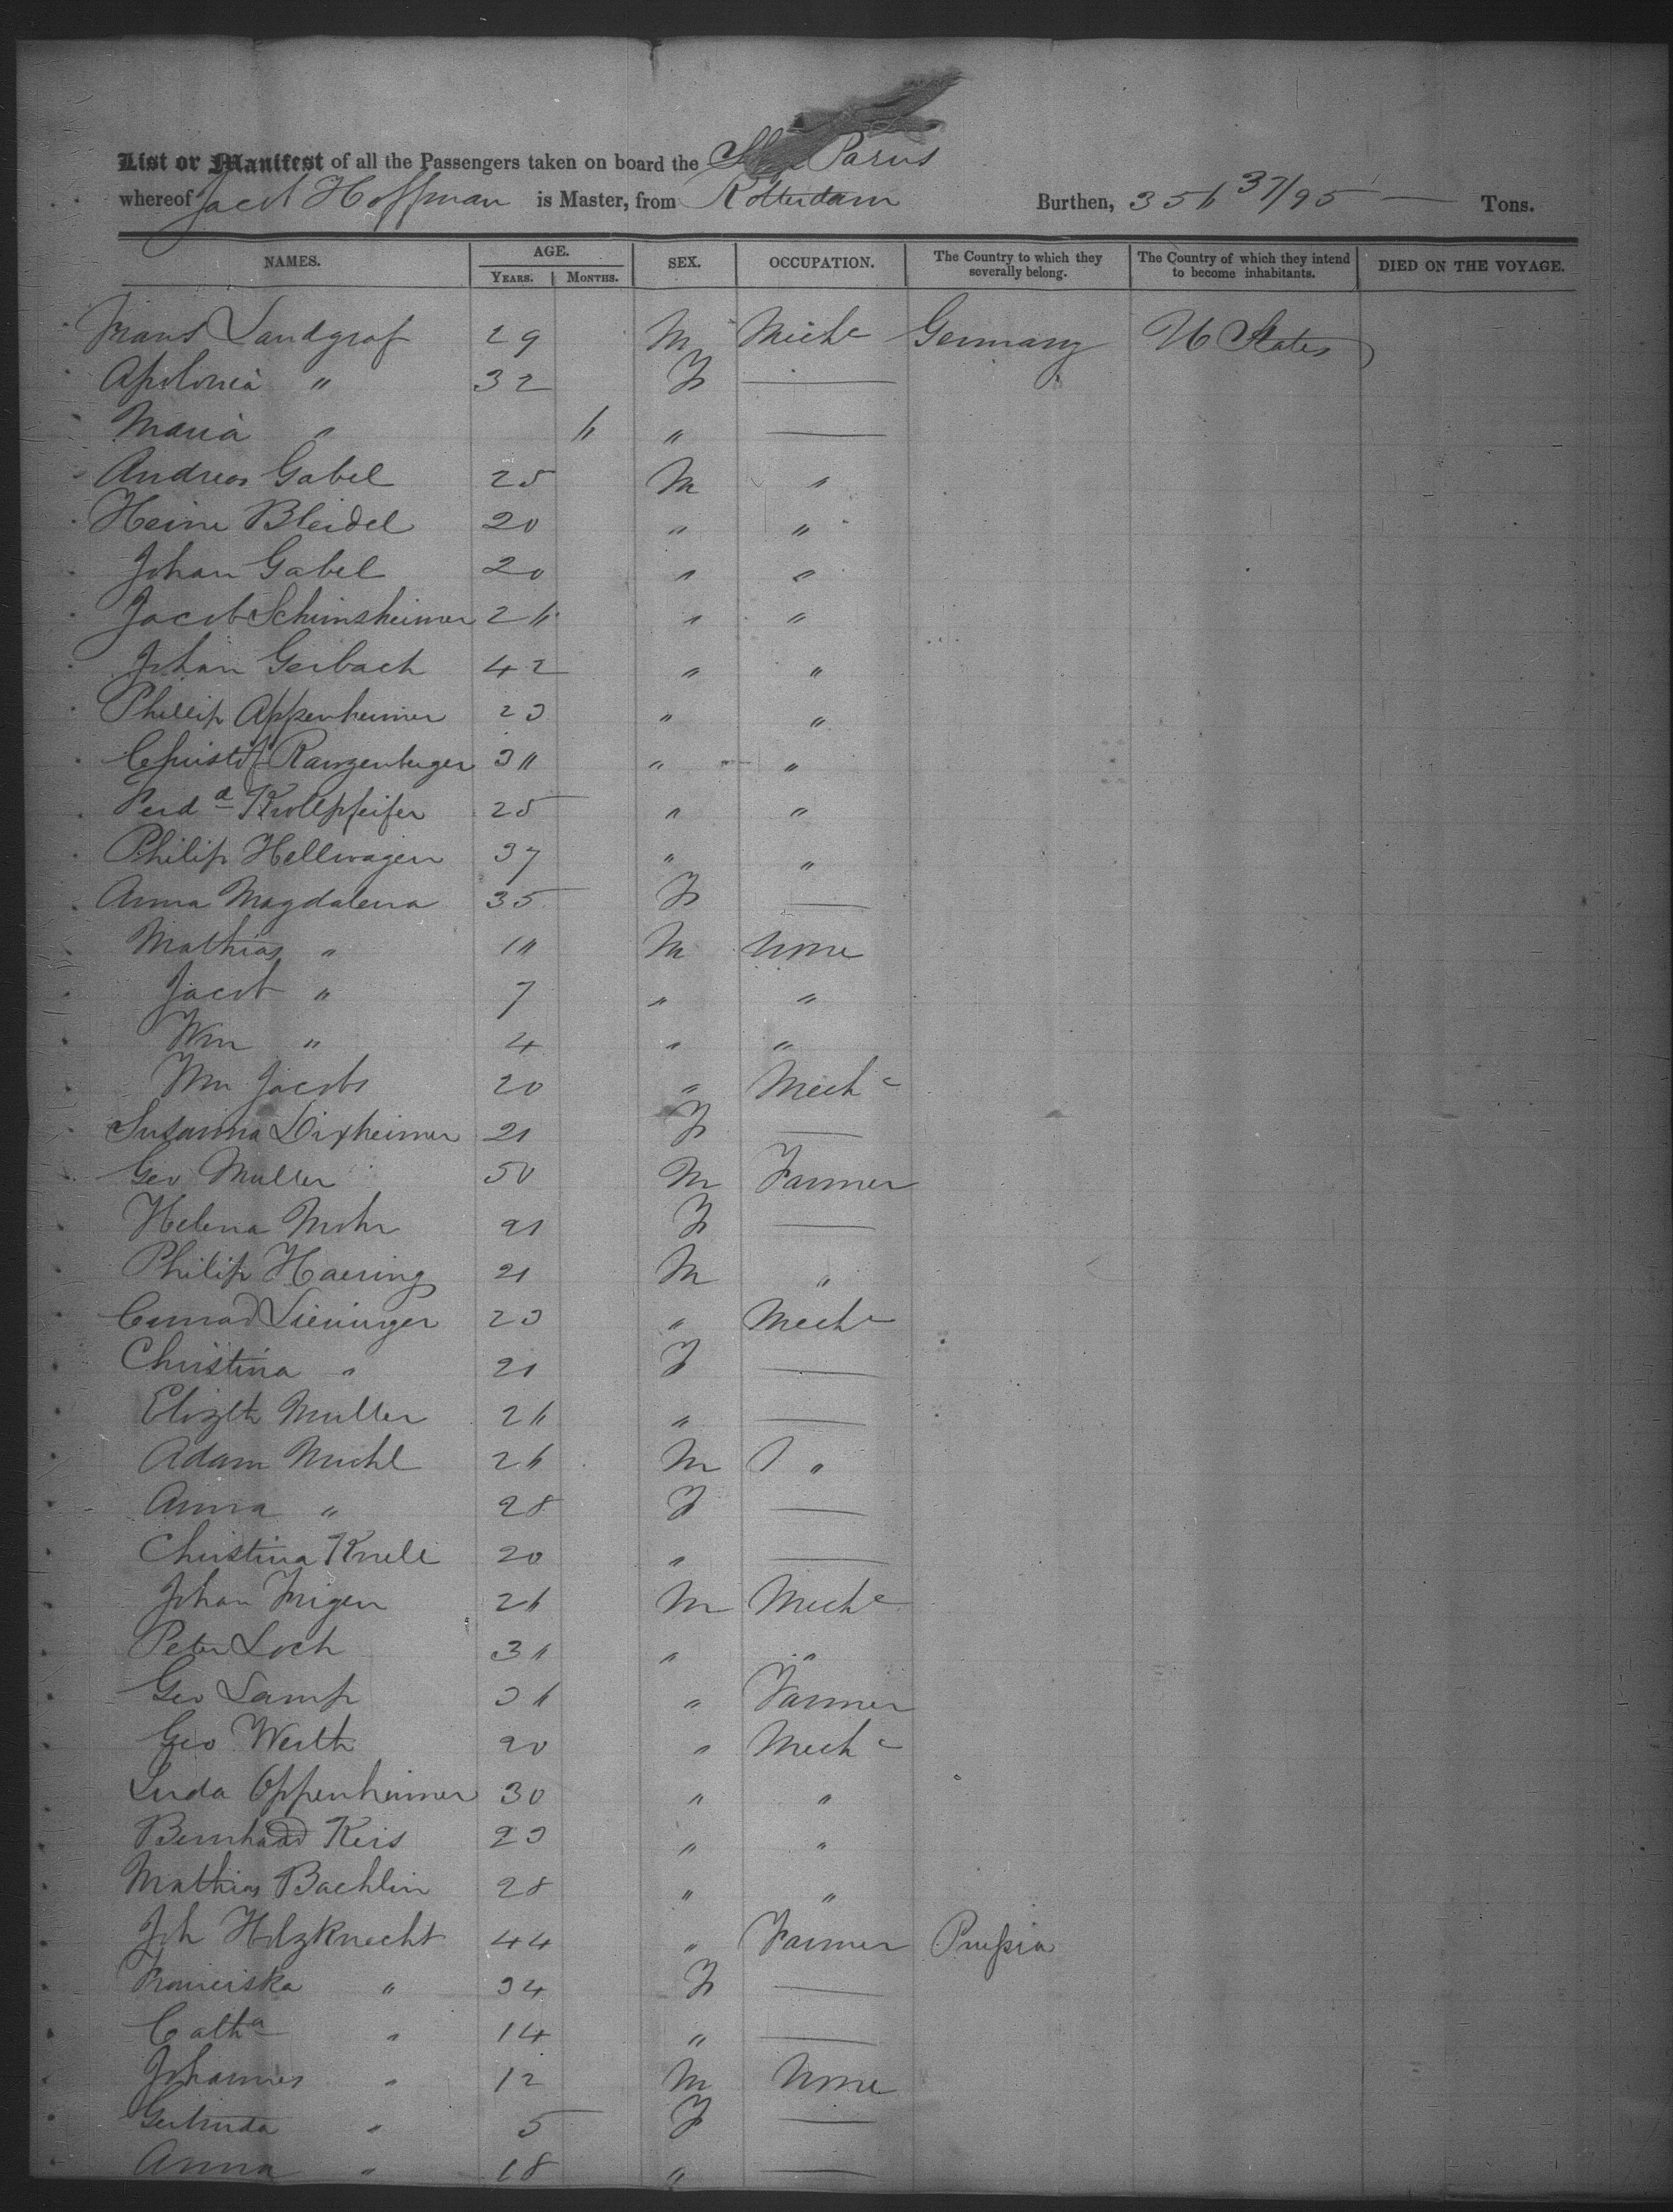 List or Manifest of all the Passengers taken on board the Ship Parus
whereof Jacob Hoffman is Master, from Rotterdam Burthen, 356 37/95 — Tons.
NAMES. AGE. SEX. OCCUPATION. The Country to which they severally belong. The Country of which they intend to become inhabitants. DIED ON THE VOYAGE.
YEARS. MONTHS.
Frans Landgraf 29 M Mechc Germany U States
Apolonia " 32 F —
Maria " 6 " —
Andreas Gabel 25 M "
Heine Bleidel 20 " "
Johan Gabel 20 " "
Jacob Schimsheimer 26 " "
Johan Gerbach 42 " "
Phillip Appenheimer 23 " "
Christof Ranzenberger 31 " "
Ferdd Krollpfeifer 25 " "
Philip Hellwagen 37 " "
Anna Magdalena 35 F —
Mathias " 11 M None
Jacob " 7 " "
Wm " 4 " "
Wm Jacobs 20 " Mechc
Susanna Dixheimer 21 F —
Geo Muller 50 M Farmer
Helena Mohr 21 F —
Philip Haering 21 M "
Conrad Lieninger 23 " Mechc
Christina " 21 F —
Elizth Muller 26 " —
Adam Muhl 26 M "
Anna " 28 F —
Christina Knell 20 " —
Johan Frigen 26 M Mechc
Peter Loch 31 " "
Geo Lamp 36 " Farmer
Geo Werth 20 " Mechc
Linda Oppenheimer 30 " "
Bernhard Keis 23 " "
Mathias Bachlin 28 " "
Joh Holzknecht 44 " Farmer Prussia
Franciska " 34 F —
Catha " 14 " —
Johannes " 12 M None
Gertruda " 5 F —
Anna " 18 " —